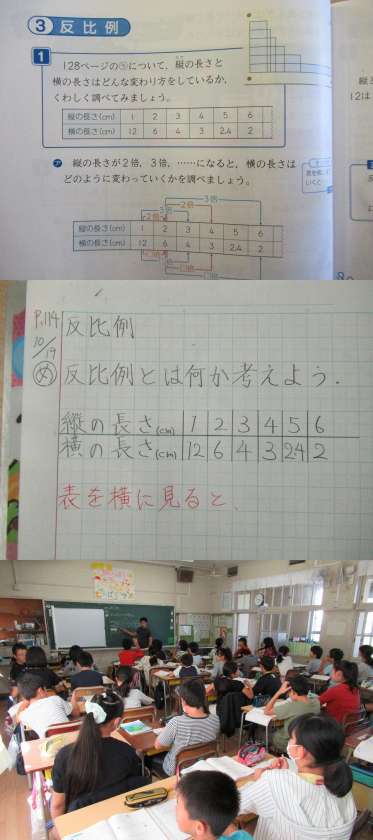 ③ 反比例
1
128ページの㋒について、縦の長さと
横の長さはどんな変わり方をしているか、
くわしく調べてみましょう。
縦の長さ(cm) 1 2 3 4 5 6
横の長さ(cm) 12 6 4 3 2.4 2
㋐ 縦の長さが2倍、3倍、……になると、横の長さは
どのように変わっていくかを調べましょう。
3倍
2倍
3倍
2倍
縦の長さ(cm) 1 2 3 4 5 6
横の長さ(cm) 12 6 4 3 2.4 2
倍
倍
倍
倍
P.114
10/19
反比例
め 反比例とは何か考えよう.
縦の長さ(cm) 1 2 3 4 5 6
横の長さ(cm) 12 6 4 3 2.4 2
表を横に見ると、